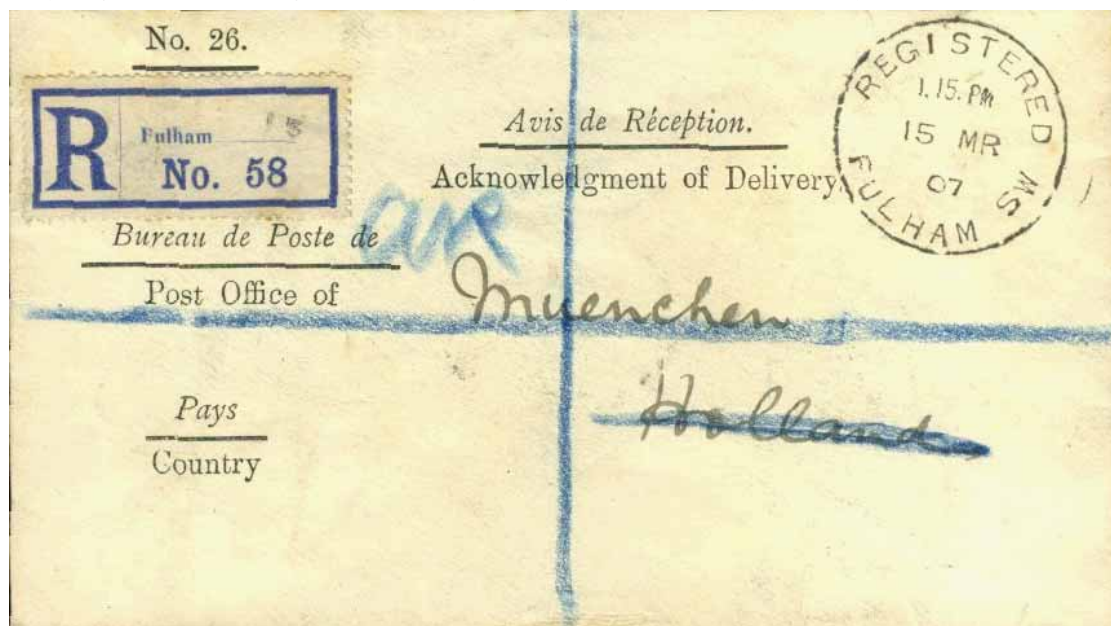 No. 26.
R
Fulham 15
No. 58
Avis de Réception.
Acknowledgment of Delivery.
REGISTERED
1.15.PM
15 MR
07
FULHAM SW
Bureau de Poste de
Post Office of
Muenchen
Pays
Country
Holland